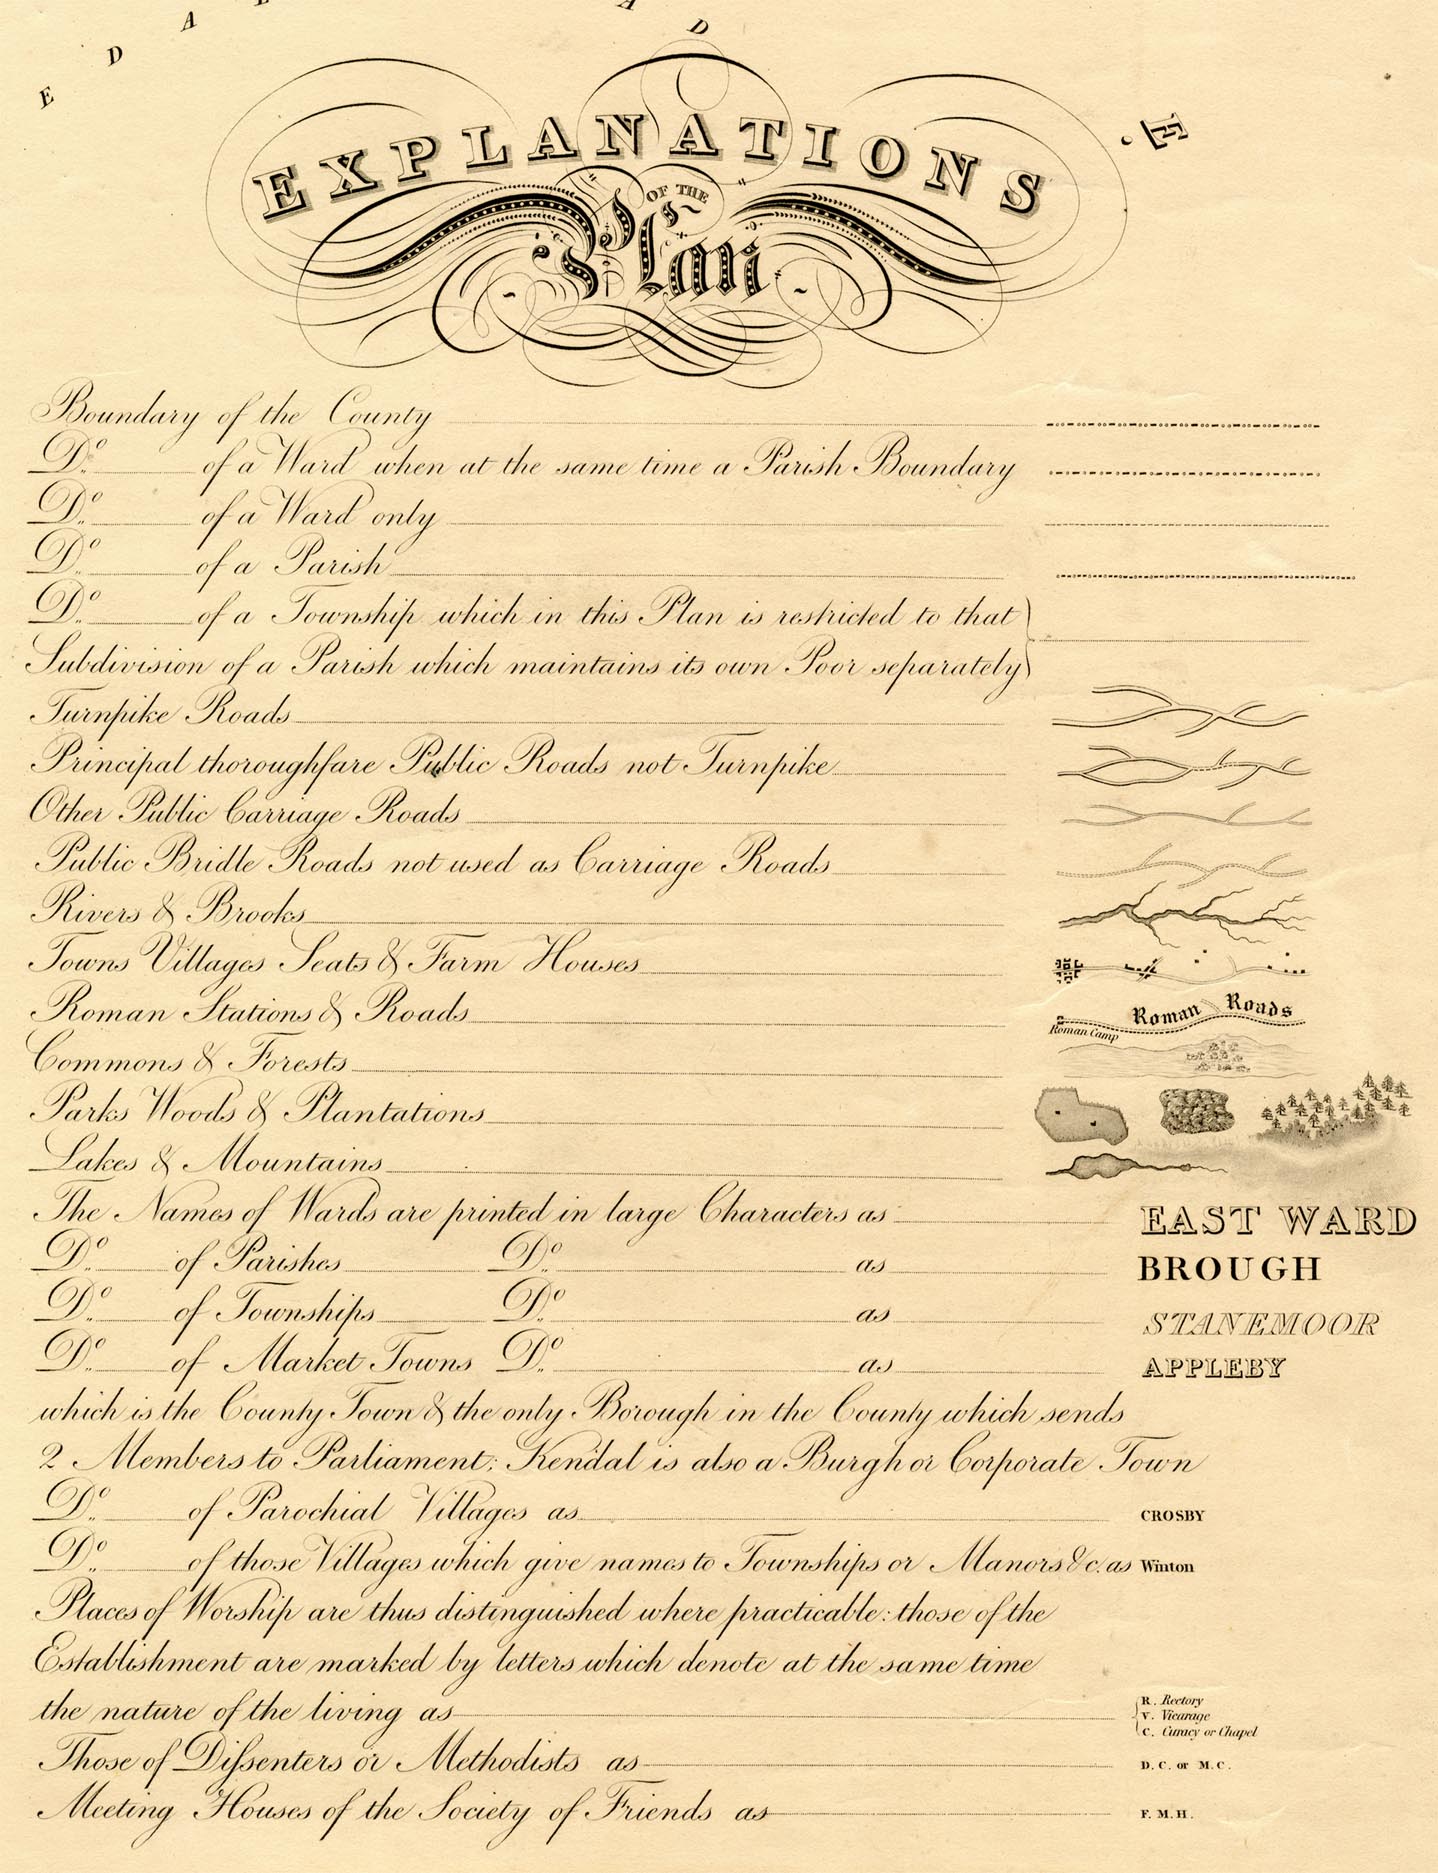 E D A
A D
E
EXPLANATIONS
OF THE
Plan
Boundary of the County
Do. of a Ward when at the same time a Parish Boundary
Do. of a Ward only
Do. of a Parish
Do. of a Township which in this Plan is restricted to that
Subdivision of a Parish which maintains its own Poor separately
Turnpike Roads
Principal thoroughfare Public Roads not Turnpike
Other Public Carriage Roads
Public Bridle Roads not used as Carriage Roads
Rivers & Brooks
Towns Villages Seats & Farm Houses
Roman Stations & Roads Roman Camp Roman Roads
Commons & Forests
Parks Woods & Plantations
Lakes & Mountains
The Names of Wards are printed in large Characters as EAST WARD
Do. of Parishes Do. as BROUGH
Do. of Townships Do. as STANEMOOR
Do. of Market Towns Do. as APPLEBY
which is the County Town & the only Borough in the County which sends
2 Members to Parliament; Kendal is also a Burgh or Corporate Town
Do. of Parochial Villages as CROSBY
Do. of those Villages which give names to Townships or Manors &c. as Winton
Places of Worship are thus distinguished where practicable: those of the
Establishment are marked by letters which denote at the same time
the nature of the living as
R. Rectory
V. Vicarage
C. Curacy or Chapel
Those of Difsenters or Methodists as D.C. or M.C.
Meeting Houses of the Society of Friends as F.M.H.